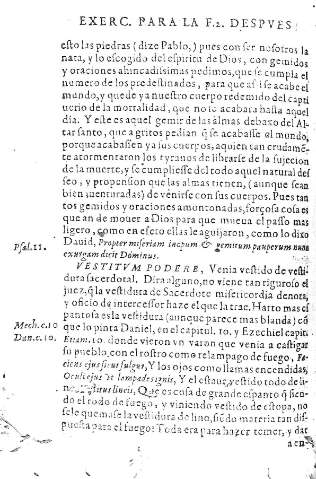 EXERC. PARA LA F.2. DESPVES
esto las piedras (dize Pablo,) pues con ser nosotros la
nata, y lo escogido del espiritu de Dios, con gemidos
y oraciones ahincadissimas pedimos, que se cumpla el
numero de los predestinados, para que assi se acabe el
mundo, y quede ya nuestro cuerpo redemido del capti
uerio de la mortalidad, que no se acabara hasta aquel
dia. Y este es aquel gemir de las almas debaxo del Al-
tar santo, que a gritos pedian q̃ se acabasse el mundo,
porque acabassen ya sus cuerpos, aquien tan crudamẽ-
te atormentaron los tyranos de librarse de la sujecion
de la muerte, y se cumpliesse del todo aquel natural des
seo, y propension que las almas tienen, (aunque sean
bien auenturadas) de venirse con sus cuerpos. Pues tan
tos gemidos y oraciones amontonadas, forçosa cosa es
que an de mouer a Dios para que mueua el passo mas
ligero, como en efeto ellas le aguijaron, como lo dixo
Psal.11. Dauid, Propter miseriam inopum & gemitum pauperum nunc
exurgam dicit Dominus.
VESTITVM PODERE, Venia vestido de vesti-
dura sacerdotal. Dira alguno, no viene tan riguroso el
juez, q̃ la vestidura de Sacerdote misericordia denota,
y oficio de intercessor haze el que la trae. Harto mas es
pantosa es la vestidura (aunque parece mas blanda) cõ
Mech. c.10 que lo pinta Daniel, en el capitul. 10, y Ezechiel capit.
Dan. c. 10. 10. donde vieron vn varon que venia a castigar
su pueblo, con el rostro como relampago de fuego, Fa-
cies eius sicut fulgur, Y los ojos como llamas encendidas,
Oculi ejus vt lampades ignis, Y el estaua vestido todo de li-
no Vestitus lineis, Que es cosa de grande espanto q̃ sien-
do el todo de fuego, y viniendo vestido de estopa, no
se le quemasse la vestidura de lino, siẽdo materia tan dis-
puesta para el fuego: Toda era para hazer temer, y dar
a en-